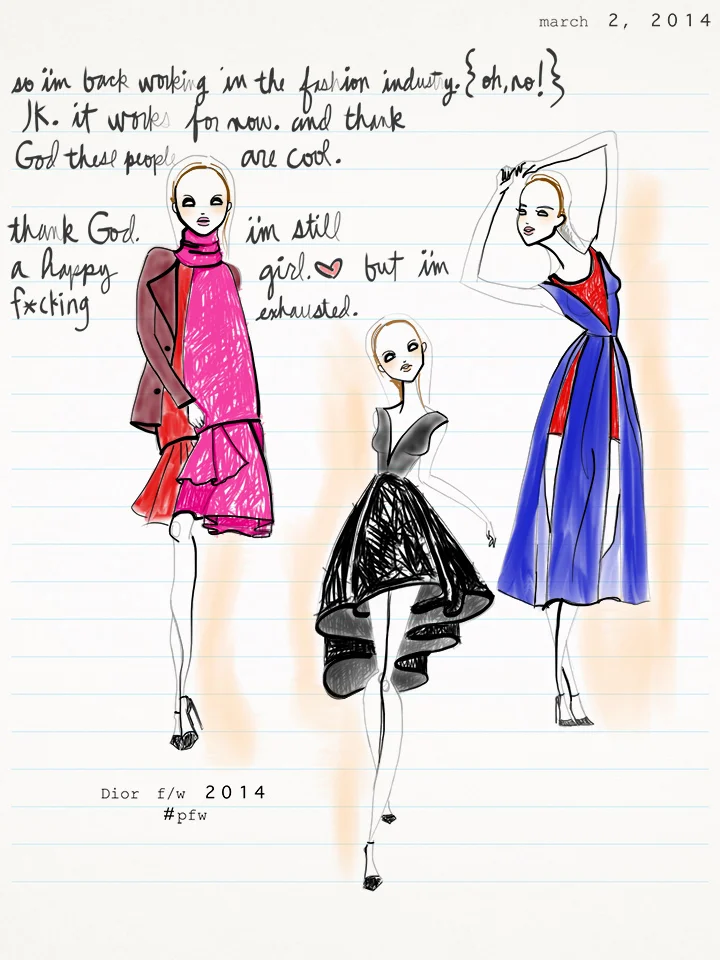 march 2, 2014
so i'm back working in the fashion industry. {oh, no!}
JK. it works for now. and thank
God these people are cool.
thank God. i'm still
a happy girl. but i'm
f*cking exhausted.
Dior f/w 2014
#pfw